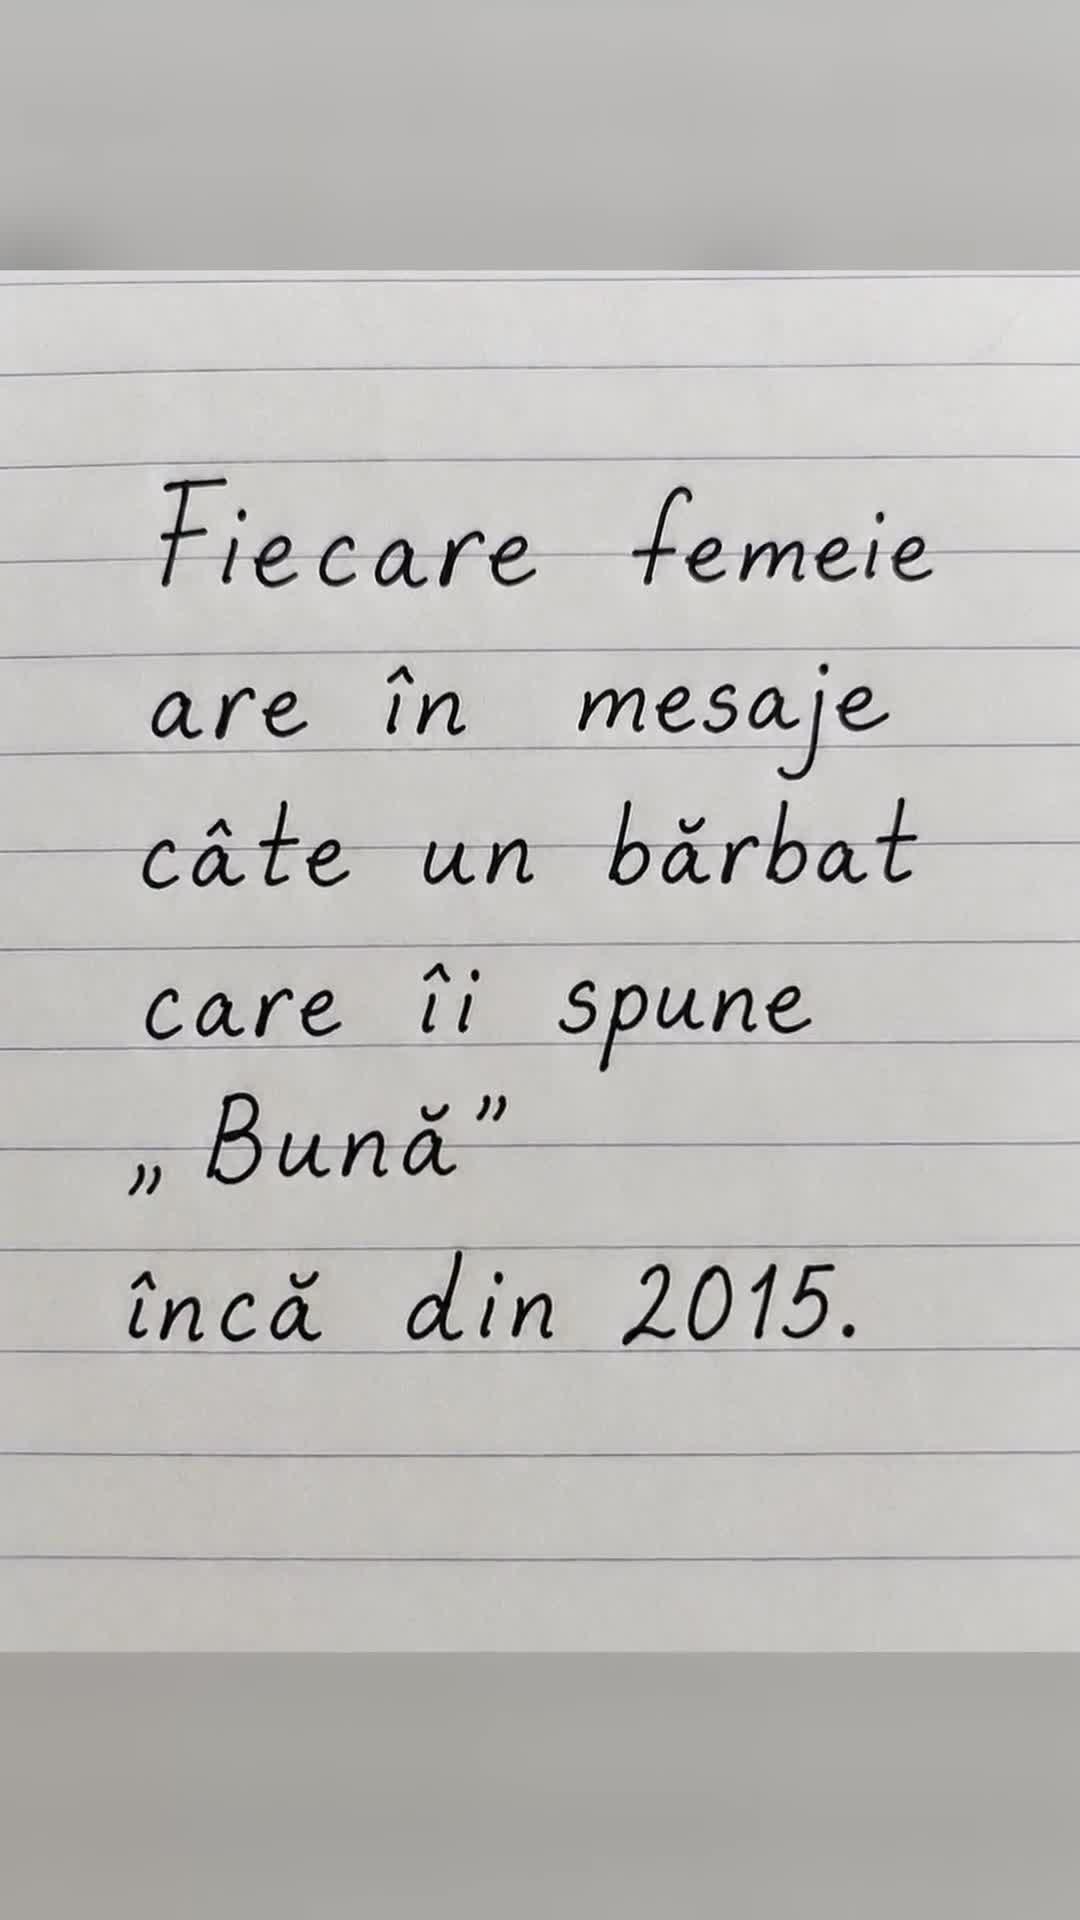 Fiecare femeie
are în mesaje
câte un bărbat
care îi spune
„Bună”
încă din 2015.